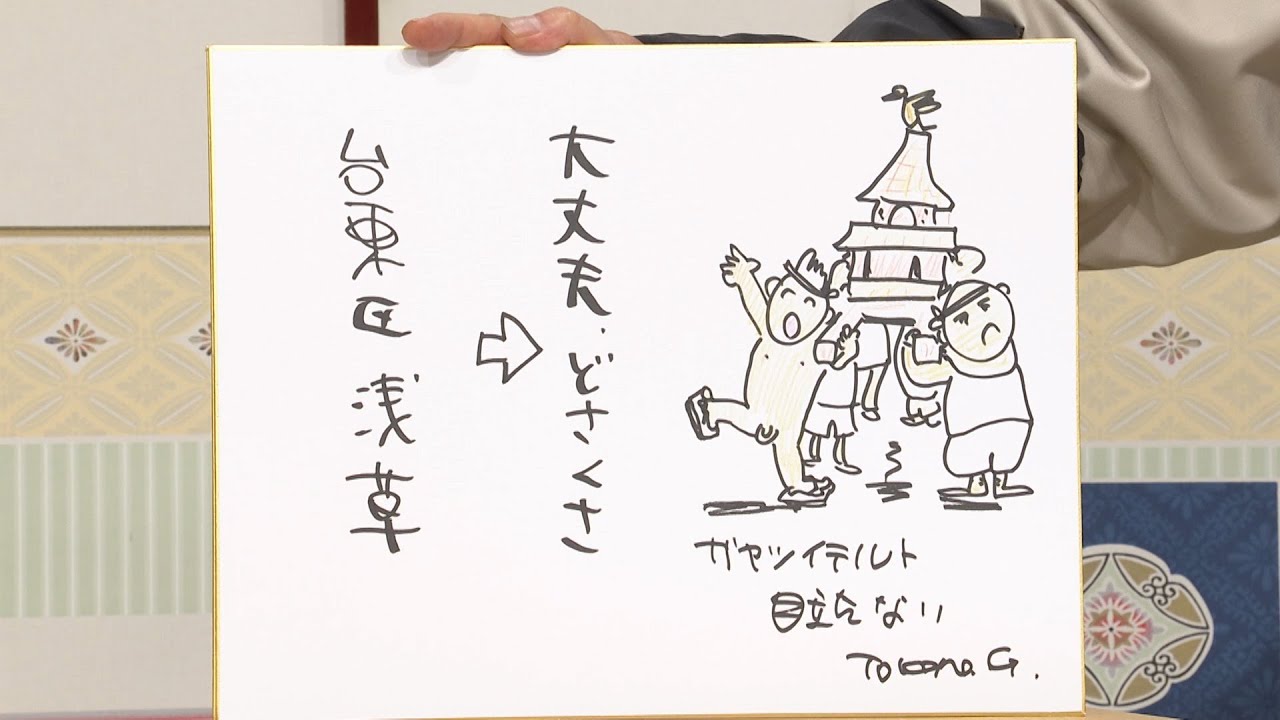 台東区 浅草
⇨
大丈夫、どさくさ
ガヤツイテルト
目立たない